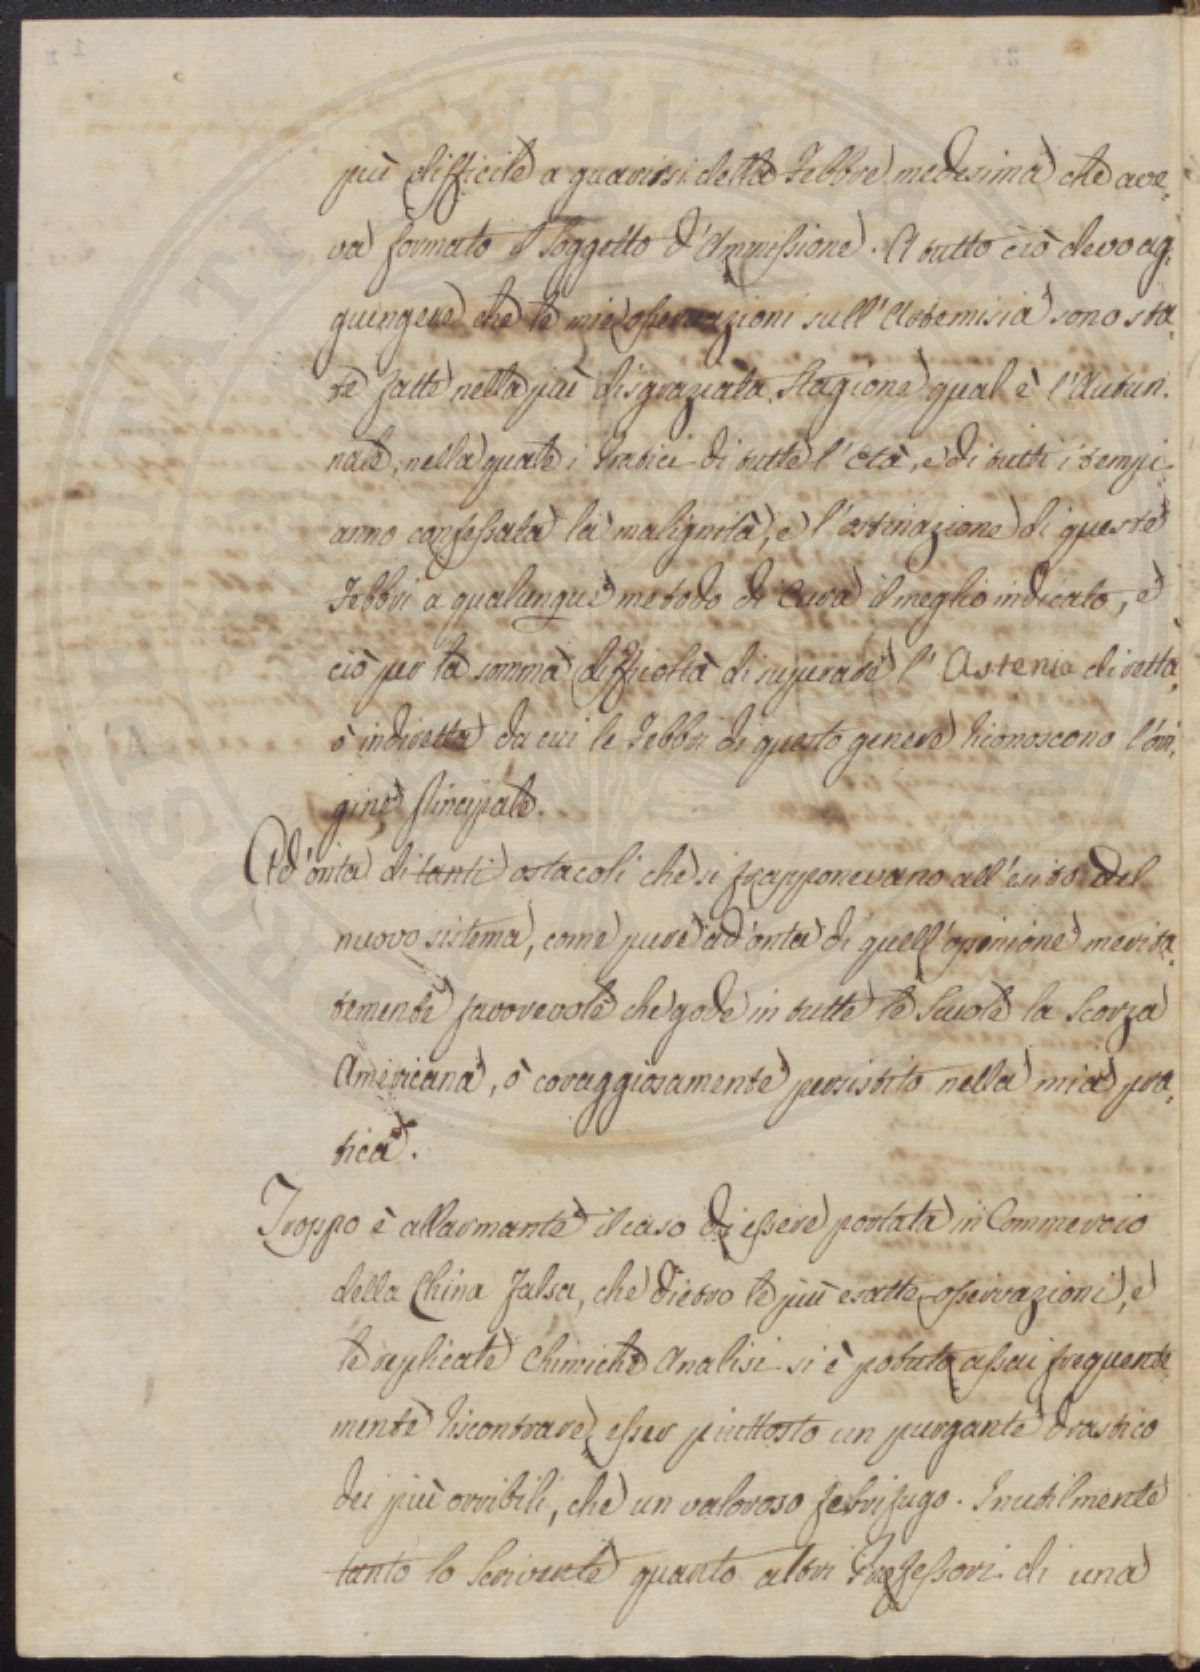 più difficile a guarirsi della Febbre medesima che ave-
va formato il soggetto d'Ammissione. A tutto ciò devo ag-
giungere che le mie osservazioni sull'Artemisia sono sta-
te fatte nella più disgraziata Stagione qual è l'Autun-
nale, nella quale i Pratici di tutte l'Età, e di tutti i tempi
anno confessata la malignità, e l'ostinazione di queste
Febbri a qualunque metodo di Cura il meglio indicato, e
ciò per la somma difficoltà di superare l'Astenia diretta,
ò indiretta da cui le Febbri di questo genere riconoscono l'ori-
gine principale.
Ad'onta di tanti ostacoli che si frapponevano all'esito del
nuovo sistema, come pure ad'onta di quell'opinione merita-
temente favorevole che gode in tutte le Scuole la Scorza
Americana, ò coraggiosamente persistito nella mia pra-
tica.
Troppo è allarmante il caso di essere portata in Commercio
della China falsa, che dietro le più esatte osservazioni, e
le replicate Chimiche Analisi si è potuto assai frequente-
mente riscontrare esser piuttosto un purgante drastico
dei più orribili, che un valoroso febrifugo. Inutilmente
tanto lo Scrivente quanto altri Professori di una
PROSPERITATI PUBLICAE